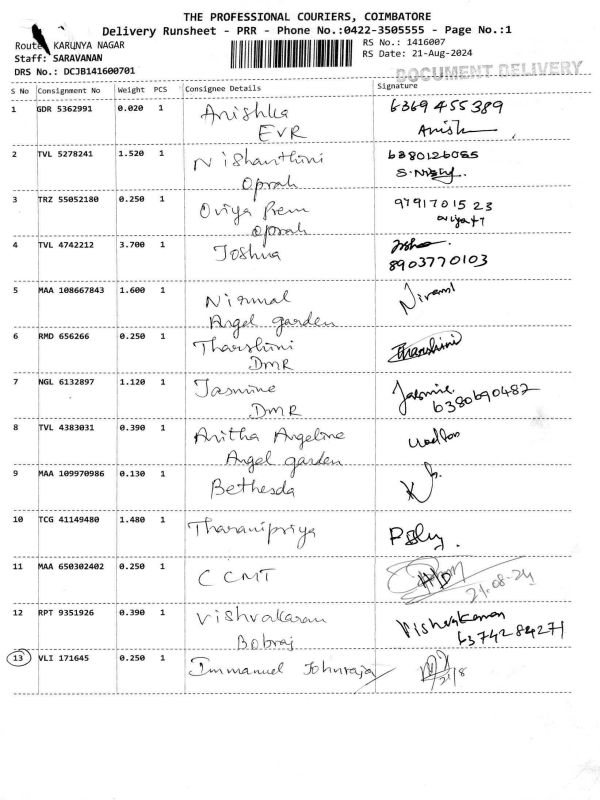 THE PROFESSIONAL COURIERS, COIMBATORE
Delivery Runsheet - PRR - Phone No.:0422-3505555 - Page No.:1
Route: KARUNYA NAGAR
RS No.: 1416007
Staff: SARAVANAN
RS Date: 21-Aug-2024
DRS No.: DCJB141600701
DOCUMENT DELIVERY
S No Consignment No Weight PCS Consignee Details Signature
1 GDR 5362991 0.020 1 Anishka 6369 455389
EVR Anish
2 TVL 5278241 1.520 1 Nishanthini 6380126055
Oprah
3 TRZ 55052180 0.250 1 Oviya Prem 9791701523
Oprah
4 TVL 4742212 3.700 1 Joshua
8903770103
5 MAA 108667843 1.600 1 Nirmal
Angel garden
6 RMD 656266 0.250 1 Tharshini Tharshini
DMR
7 NGL 6132897 1.120 1 Jasmine Jasmine
DMR 6380690487
8 TVL 4383031 0.390 1 Anitha Angeline
Angel garden
9 MAA 109970986 0.130 1 Bethesda
10 TCG 41149480 1.480 1 Tharanipriya
11 MAA 650302402 0.250 1 CCMT
21.08.24
12 RPT 9351926 0.390 1 Vishvakaran Vishvakaran
Bobraj 6374284271
13 VLI 171645 0.250 1 Immanuel Johnraja
21/8